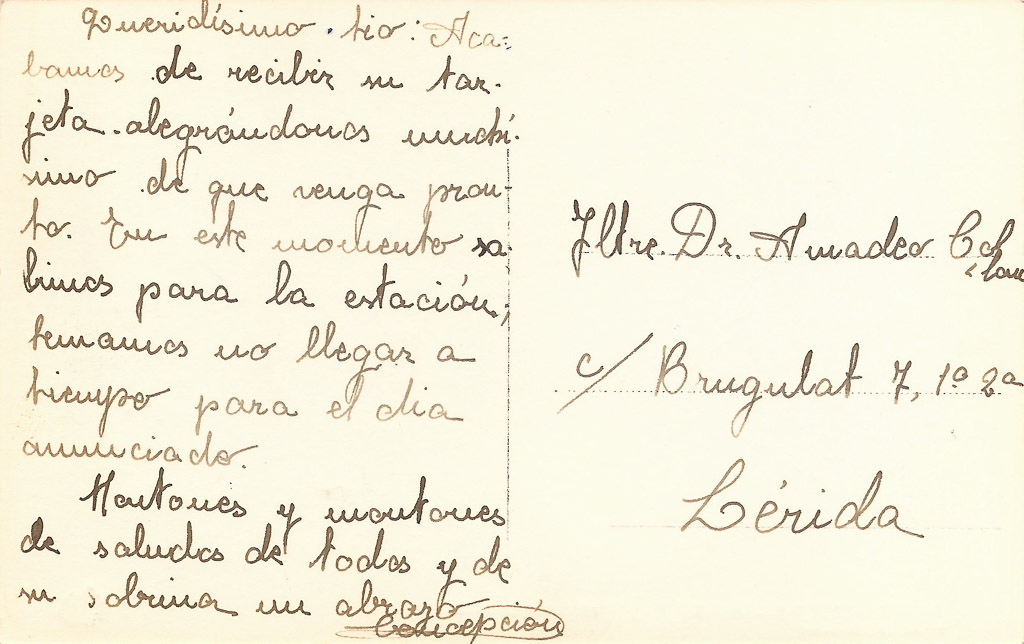 Queridísimo tio: Aca-
bamos de recibir su tar-
jeta alegrándonos muchí-
simo de que venga pron-
to. En este momento sa-
limos para la estación,
temamos no llegar a
tiempo para el dia
anunciado.
Montones y montones
de saludos de todos y de
su sobrina un abrazo
Concepción
Iltre. Dr. Amadeo Col
c/ Brugulat 7, 1º 2ª
Lérida